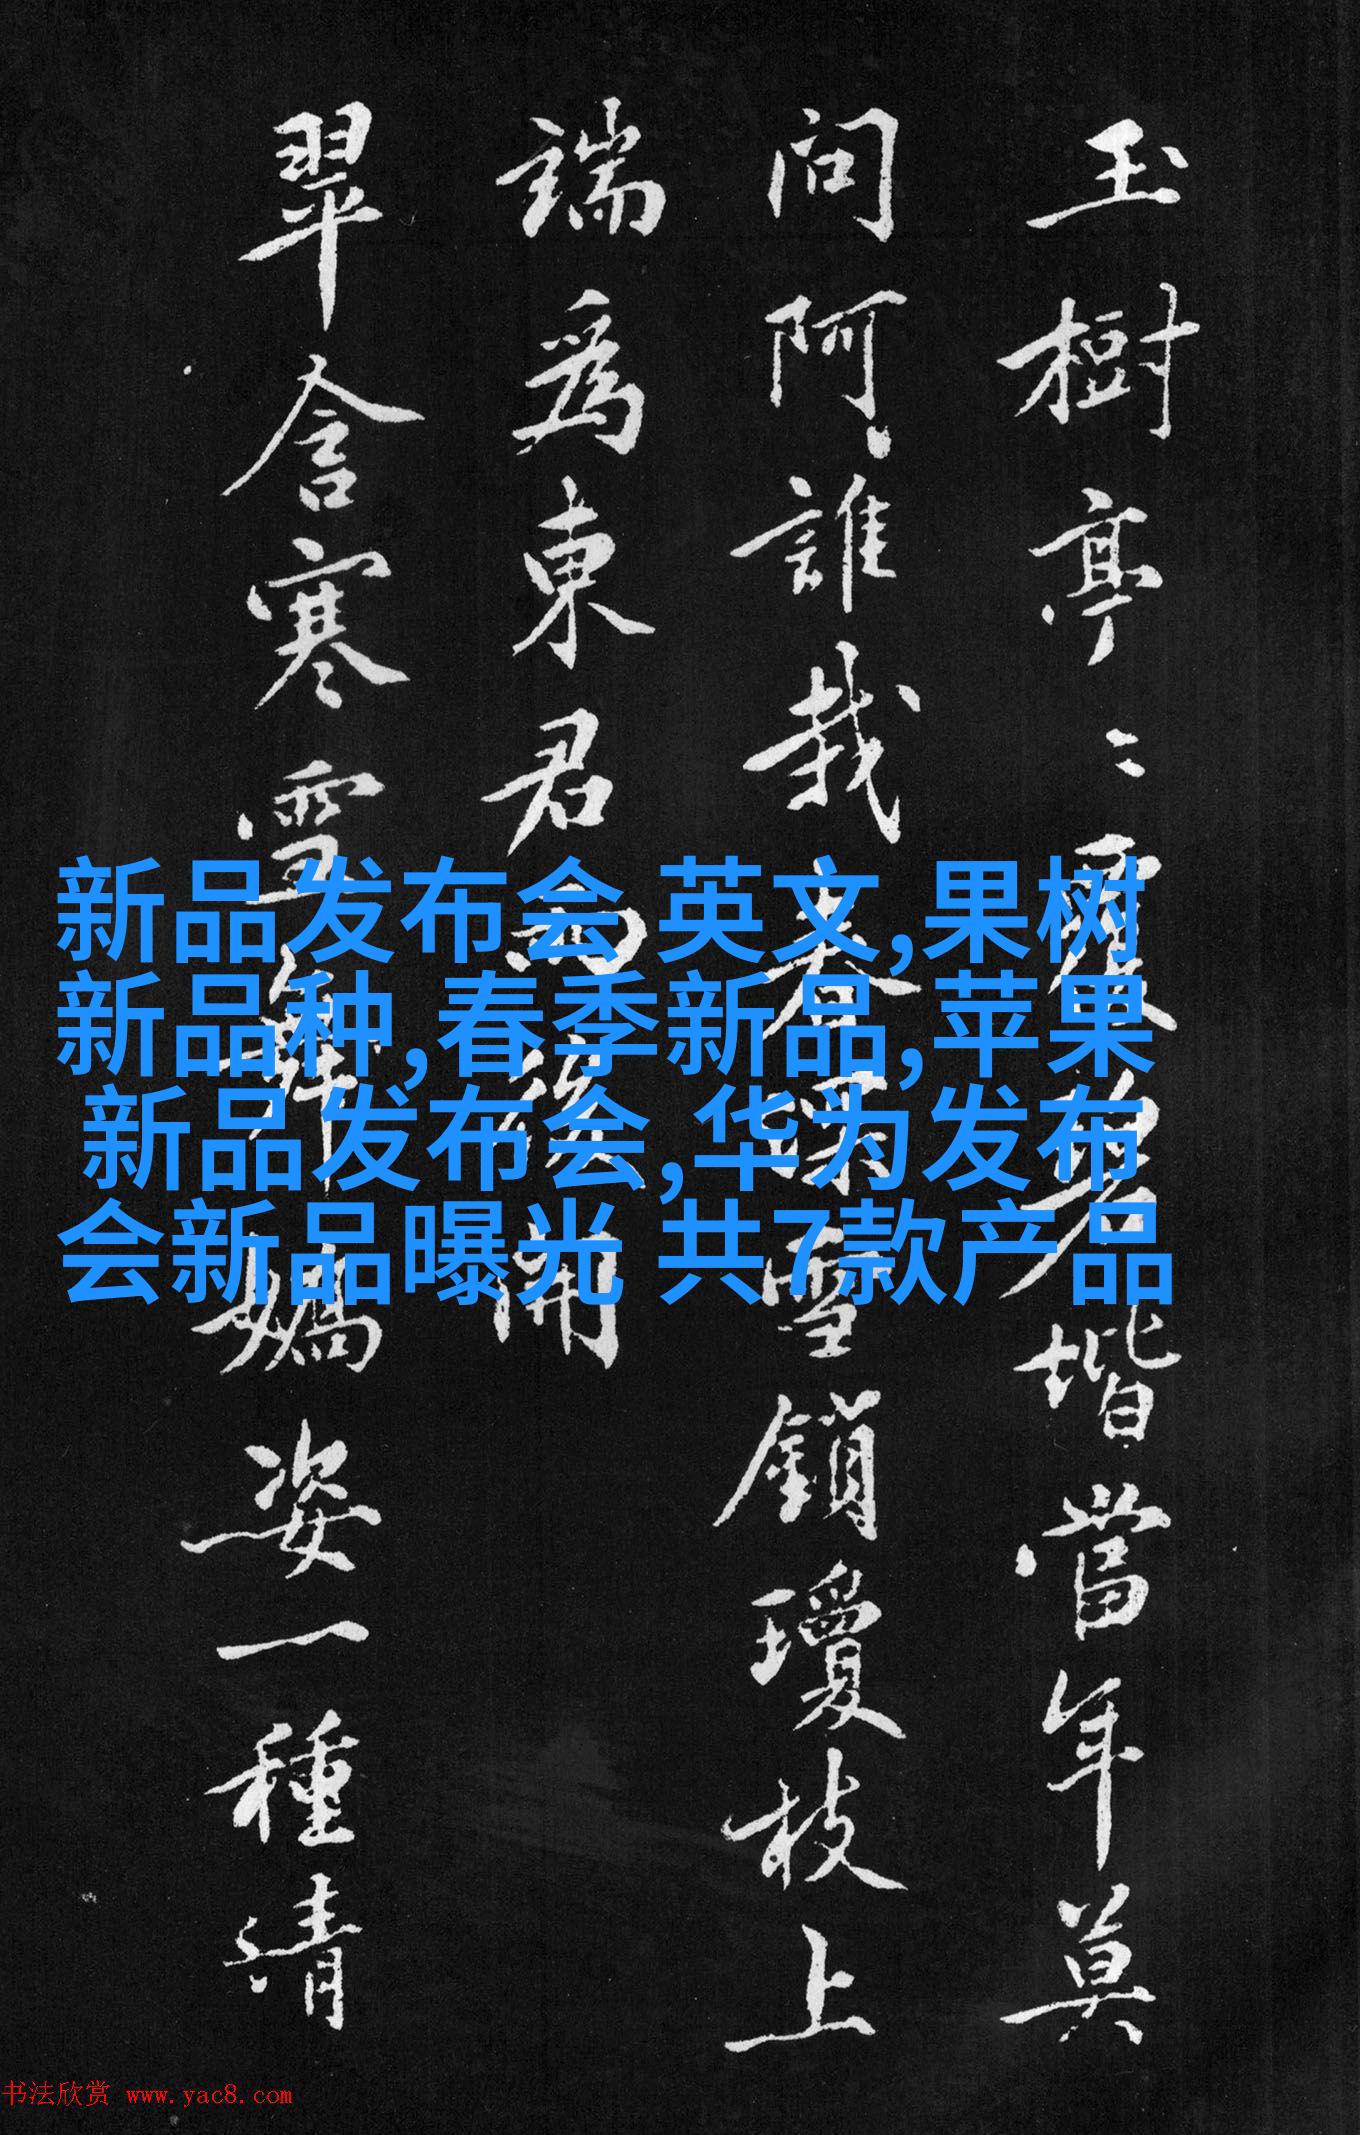 玉樹亭〻覆碧堦當年莫
問阿誰栽春深雪鎖瓊枝上
端為東君後開
翠含寒雪舞嬌姿一種清
新品发布会 英文,果树
新品种,春季新品,苹果
新品发布会,华为发布
会新品曝光 共7款产品
书法欣赏 www.yac8.com